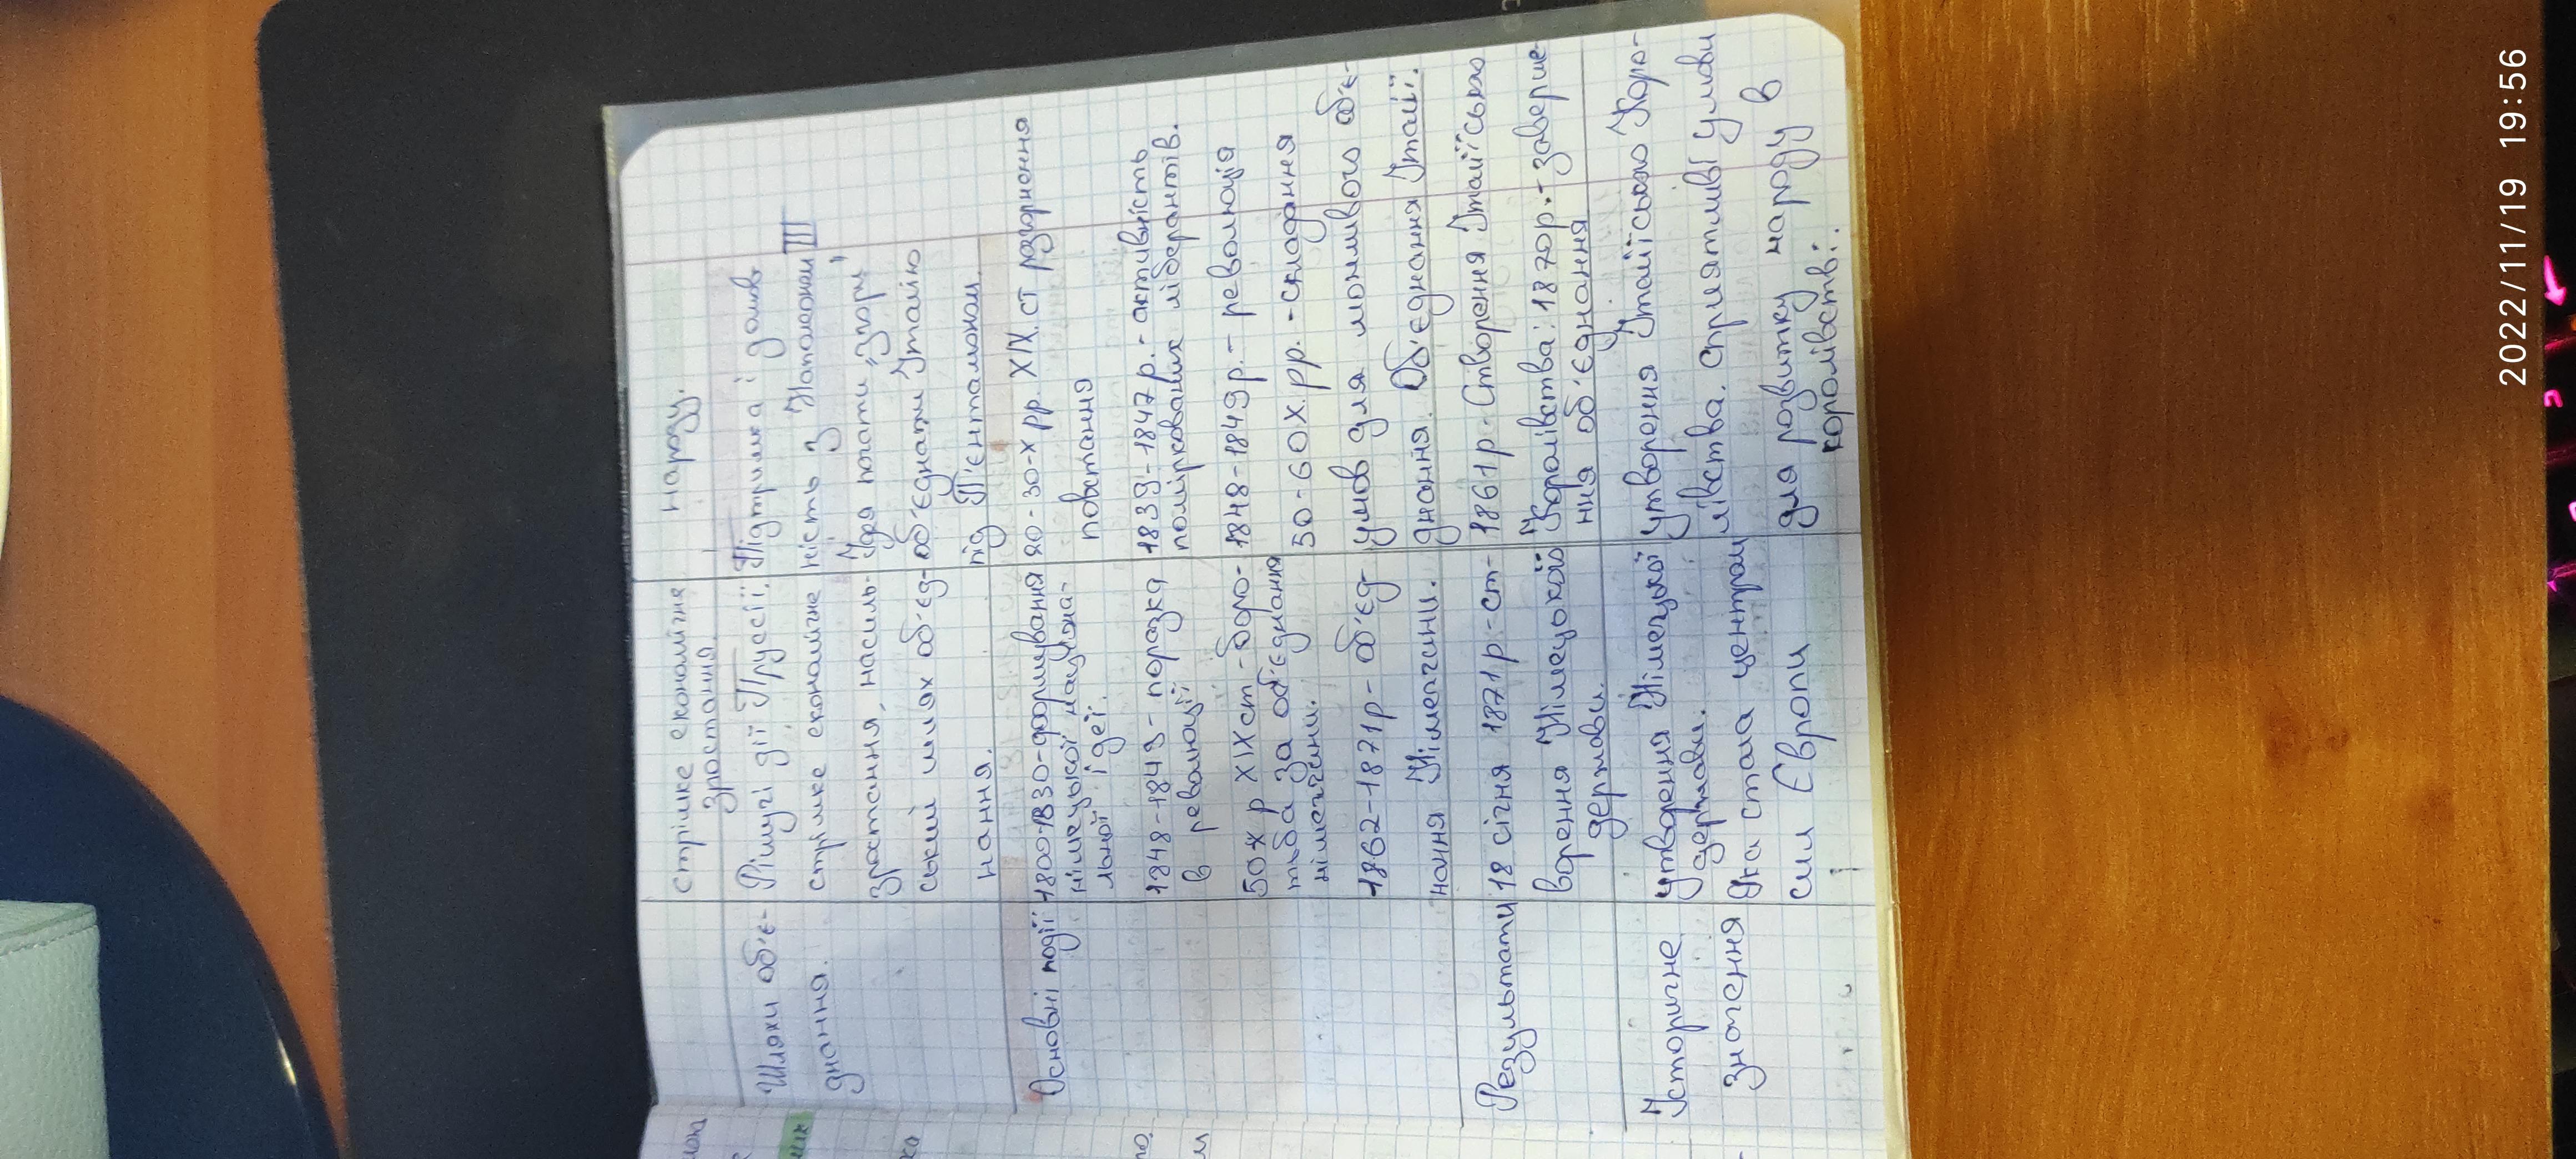 стрімке економічне
зростання.
народу.
Шляхи об'є-
днання.
Рішучі дії Пруссії,
стрімке економічне
зростання, насиль-
ський шлях об'єд-
нання.
Підтримка і домов
ність з Наполеоном III
Ідя почати „згори"
об'єднати Італію
під П'ємтамоном.
Основні події
1800-1830-формування
німецької націона-
льної ідеї.
1848-1849 - поразка
в революції
50х р XIX ст - боро-
тьба за об'єднання
німеччини.
1862-1871р - об'єд-
нання Німеччини.
20-30-х рр. XIX. ст розгорнення
повстання
1839-1847 р. - активність
поміркованих лібералтів.
1848-1849 р. - революція
50-60 Х. рр. - складання
умов для можливого об'є-
днання. Об'єднання Італії.
Результати
18 січня 1871 р - ст-
ворення Німецької
держави.
1861 р - Створення Італїїсько
Королівства; 1870 р. - заверше-
ння об'єднання
Історичне
значення
утворення Німецької
держави.
Яка стала центром
сил Європи
утворення Італїїсько Коро-
лівства. сприятливі умови
для розвитку народу в
королівстві.
2022/11/19 19:56